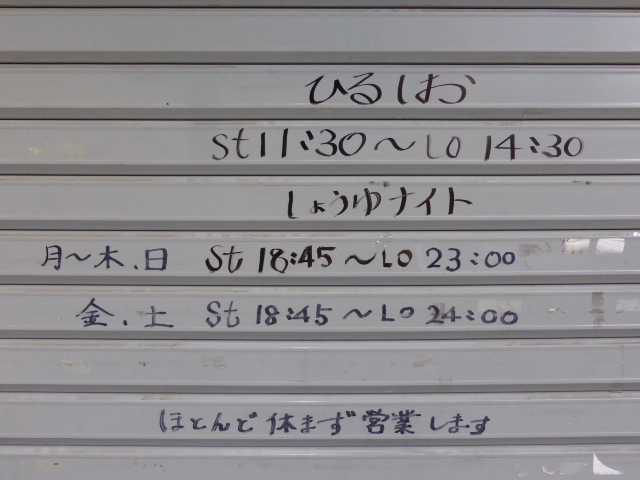 ひるしお
St 11:30～LO 14:30
しょうゆナイト
月～木.日 St 18:45～LO 23:00
金.土 St 18:45～LO 24:00
ほとんど休まず営業します